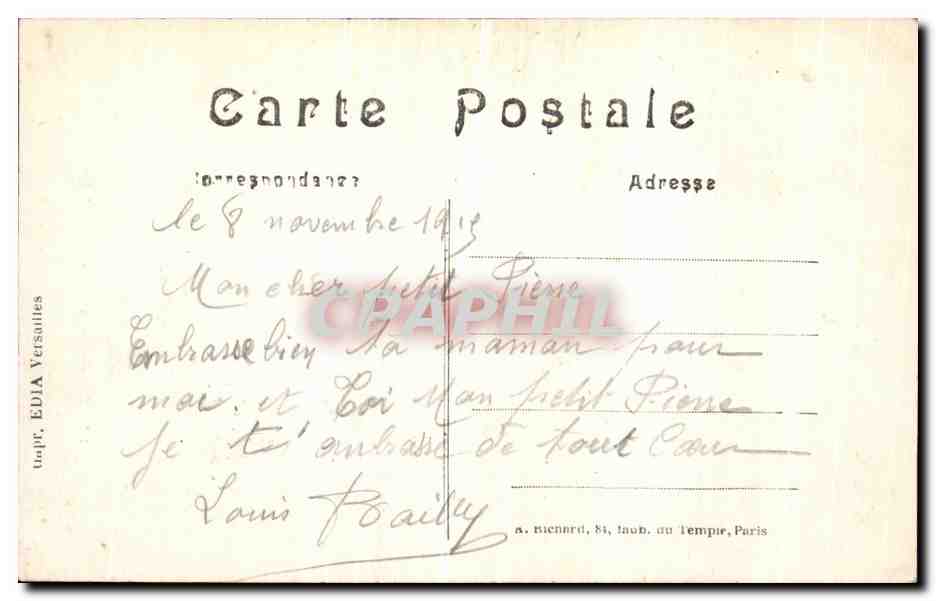 Carte Postale
Correspondance
Adresse
le 8 novembre 1915
Mon cher petit Pierre
CPAPHIL
Embrasse bien ta maman pour
moi. et toi Mon petit Pierre
je t'embrasse de tout Cœur
Louis Bailly
Impr. EDIA Versailles
A. Richard, 84, faub. du Temple, Paris